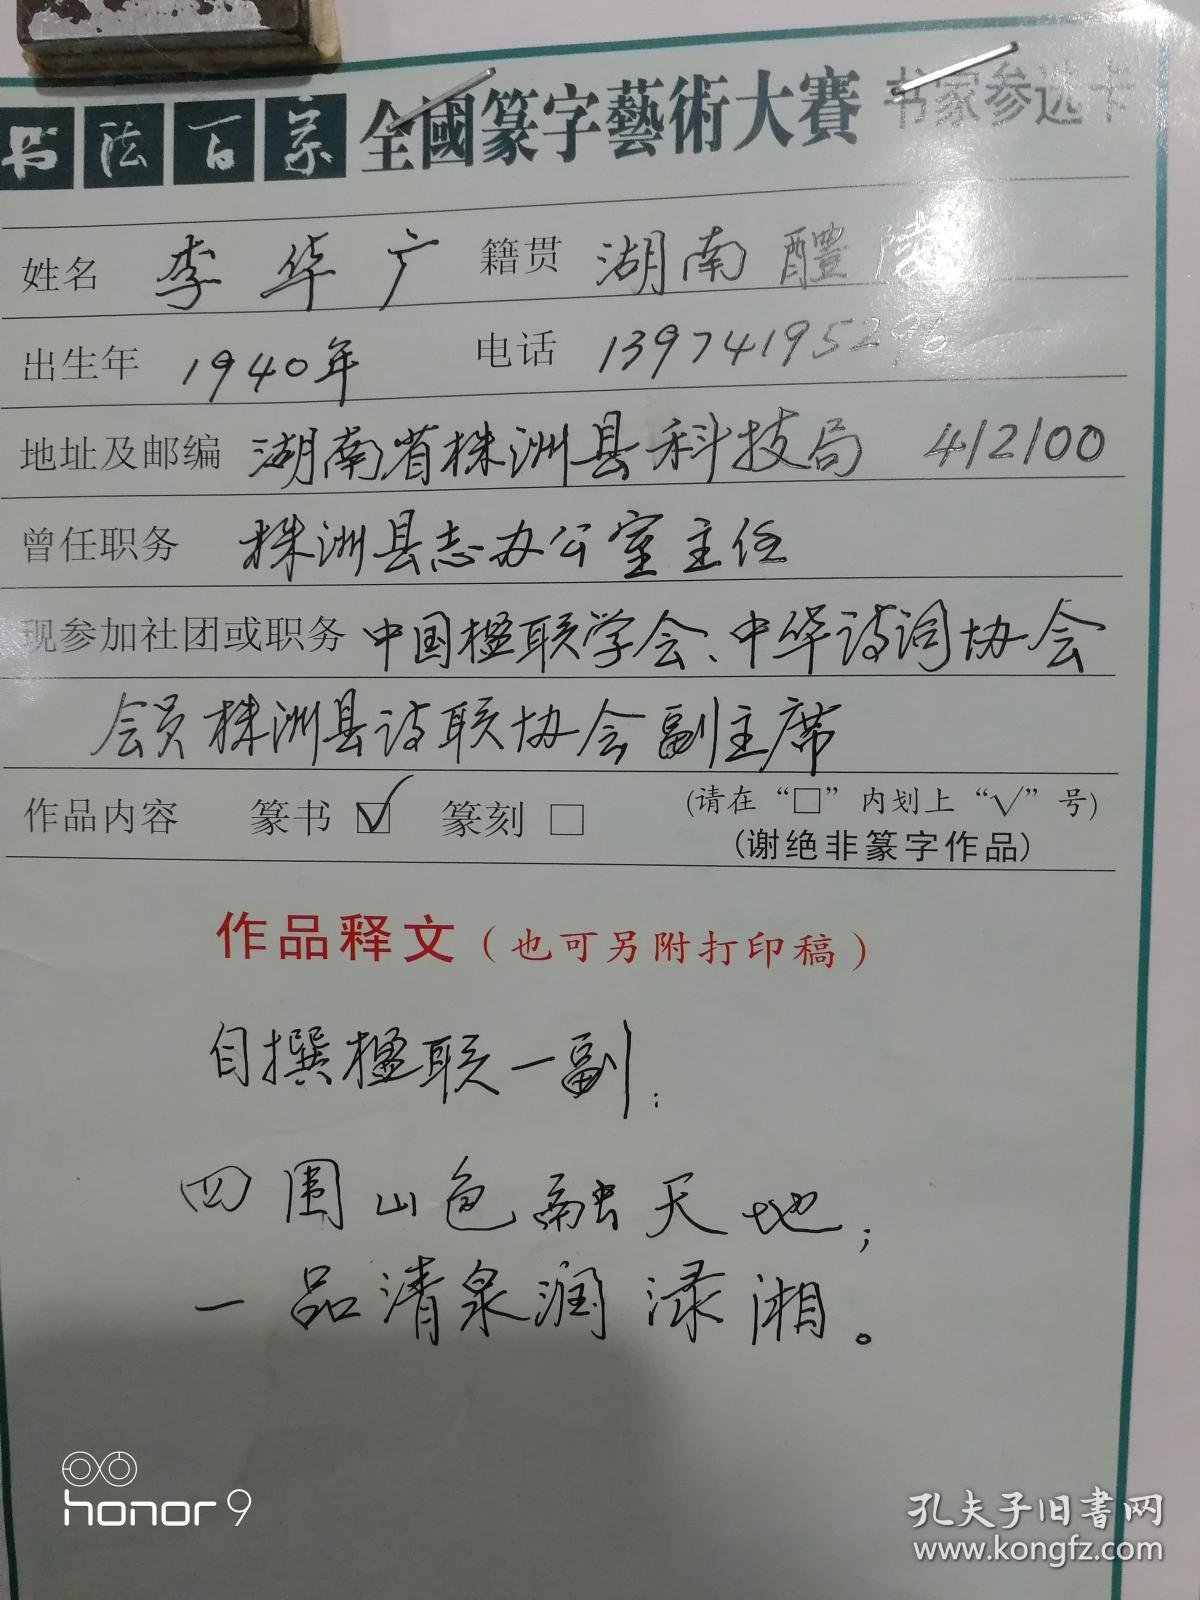 书法百家 全國篆字藝術大賽 书家参选卡
姓名 李华广 籍贯 湖南醴陵
出生年 1940年 电话 13974195296
地址及邮编 湖南省株洲县科技局 412100
曾任职务 株洲县志办公室主任
现参加社团或职务 中国楹联学会、中华诗词协会
会员 株洲县诗联协会副主席
作品内容 篆书 ☑ 篆刻 □ (请在“□”内划上“√”号)
(谢绝非篆字作品)
作品释文（也可另附打印稿）
自撰楹联一副:
四围山色融天地;
一品清泉润渌湘。
honor 9
孔夫子旧书网
www.kongfz.com